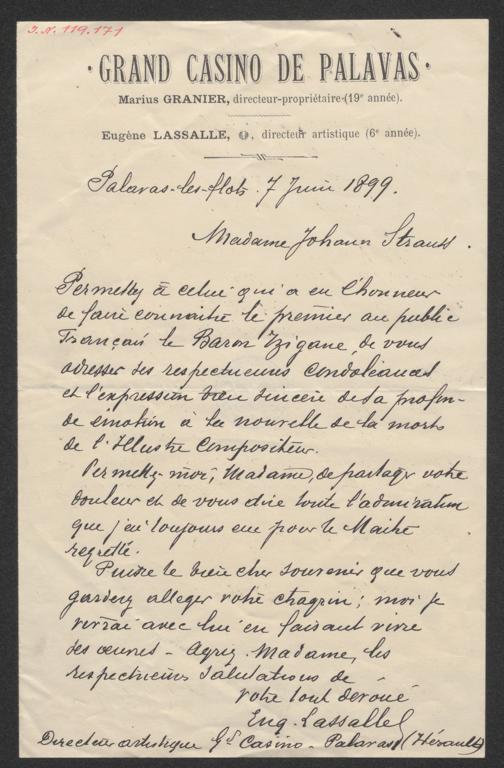 I.N. 119.171
· GRAND CASINO DE PALAVAS ·
Marius GRANIER, directeur-propriétaire (19e année).
Eugène LASSALLE, directeur artistique (6e année).
Palavas-les-flots. 7 Juin 1899.
Madame Johann Strauss.
Permettez à celui qui a eu l'honneur
de faire connaitre le premier au public
Français le Baron Tzigane, de vous
adresser ses respectueuses condoléances
et l'expression bien sincère de sa profon-
de émotion à la nouvelle de la mort
de l'Illustre Compositeur.
Permettez-moi, Madame, de partager votre
douleur et de vous dire toute l'admiration
que j'ai toujours eue pour le Maitre
regretté.
Puisse le bien cher souvenir que vous
gardez alleger votre chagrin ; moi je
vivrai avec lui en faisant vivre
ses oeuvres - Agréez, Madame, les
respectueuses salutations de
votre tout dévoué
Eug. Lassalle
Directeur artistique Gd Casino - Palavas (Hérault)